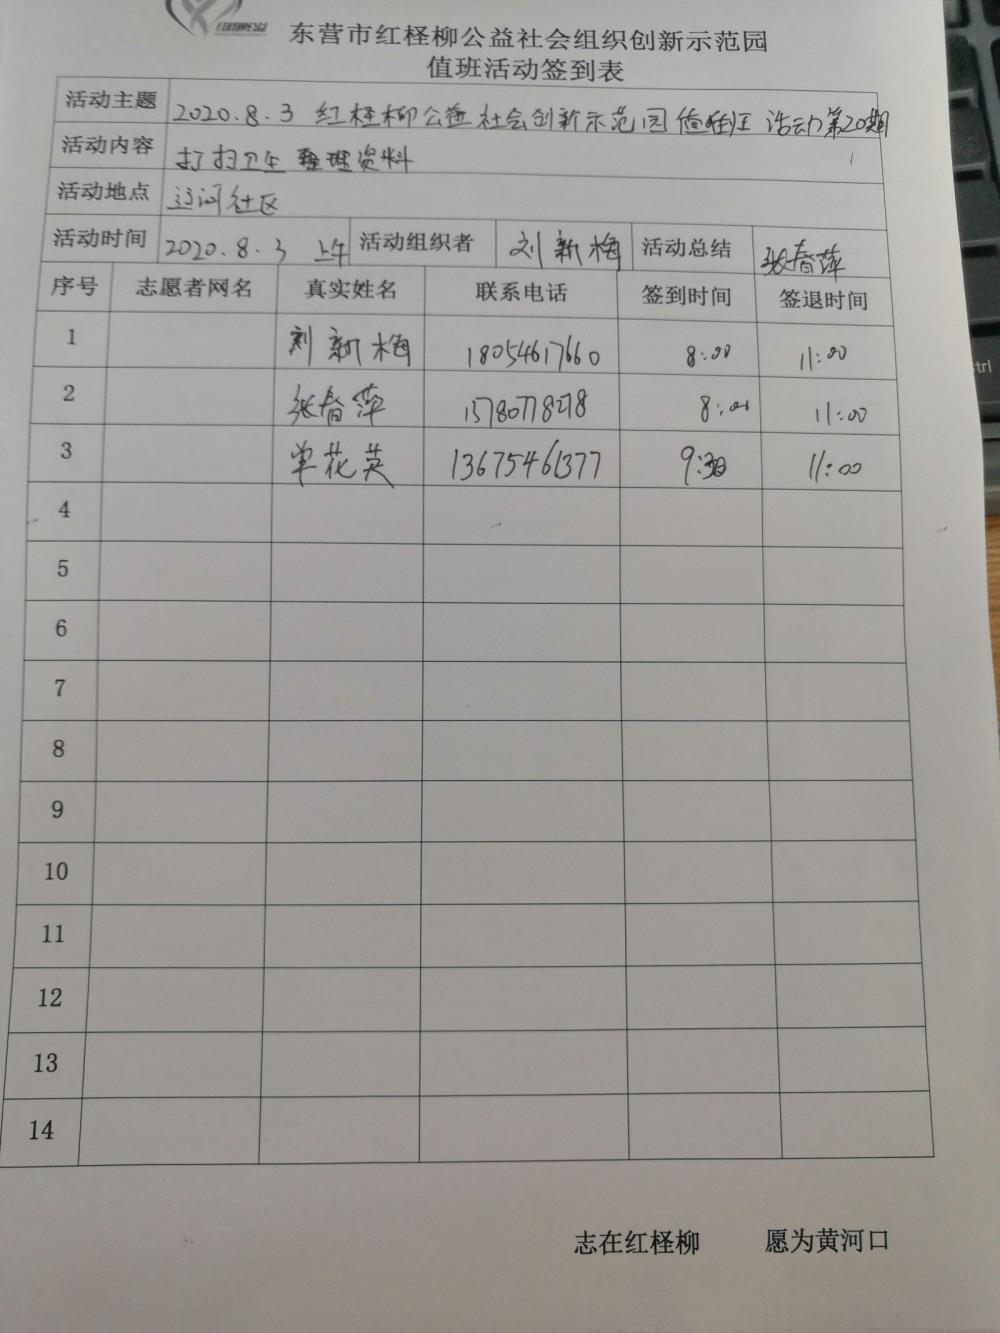 东营市红柽柳公益社会组织创新示范园
值班活动签到表
活动主题 2020.8.3 红柽柳公益社会创新示范园值班 活动第20期
活动内容 打扫卫生 整理资料
活动地点 辽河社区
活动时间 2020.8.3 上午 活动组织者 刘新梅 活动总结 张春萍
序号 志愿者网名 真实姓名 联系电话 签到时间 签退时间
1 刘新梅 18054617660 8:00 11:00
2 张春萍 8:00 11:00
3 单花英 13675461377 9:30 11:00
4
5
6
7
8
9
10
11
12
13
14
志在红柽柳 愿为黄河口